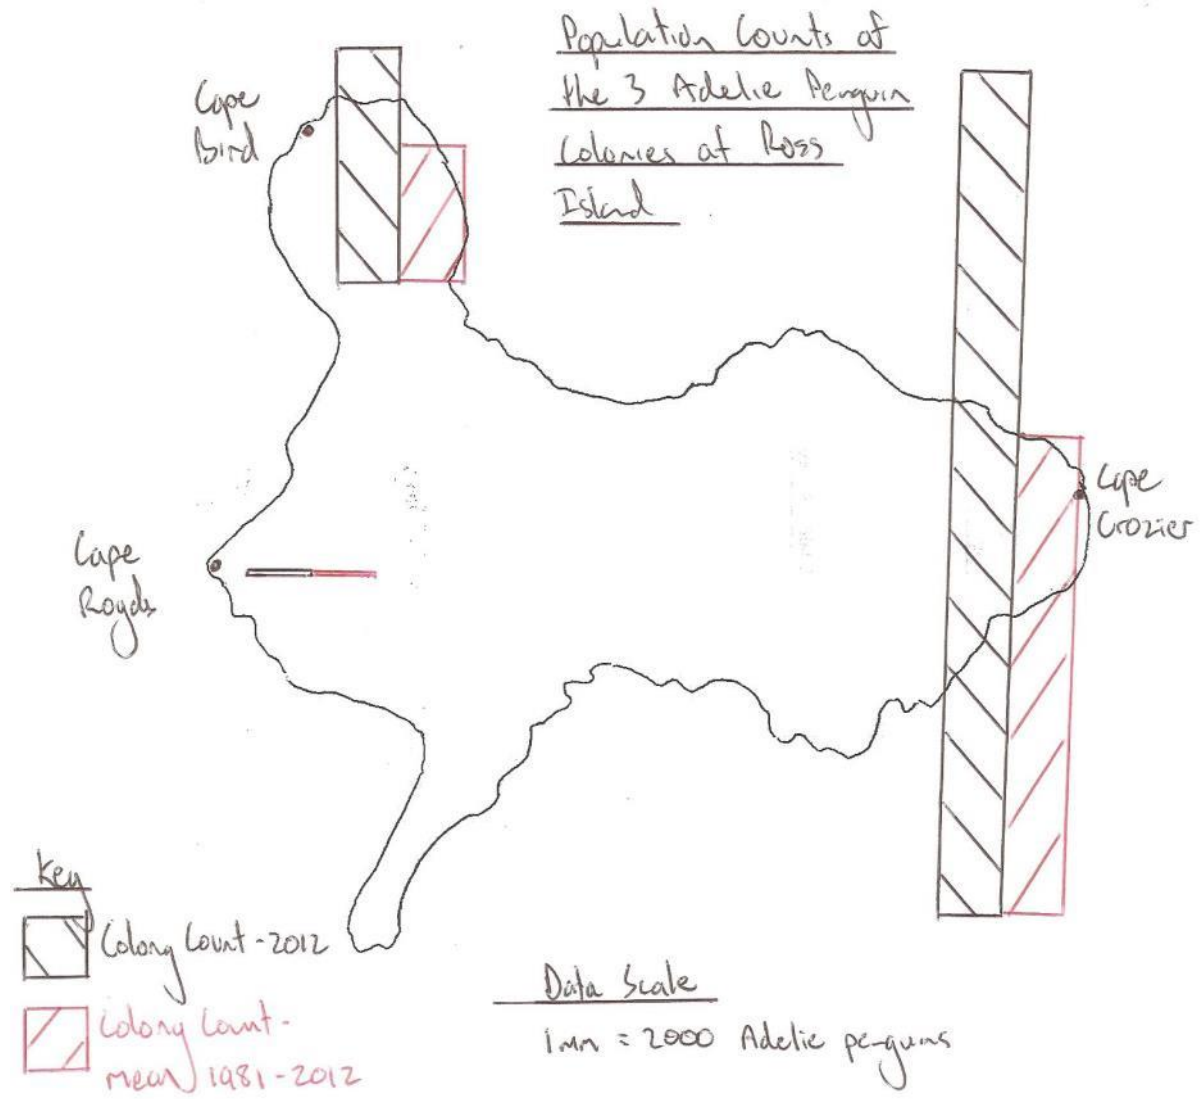 Population Counts of
the 3 Adelie Penguin
Colonies at Ross
Island
Cape
Bird
Cape
Crozier
Cape
Royds
Key
Colony Count - 2012
Colony Count -
mean 1981-2012
Data Scale
1mm = 2000 Adelie penguins